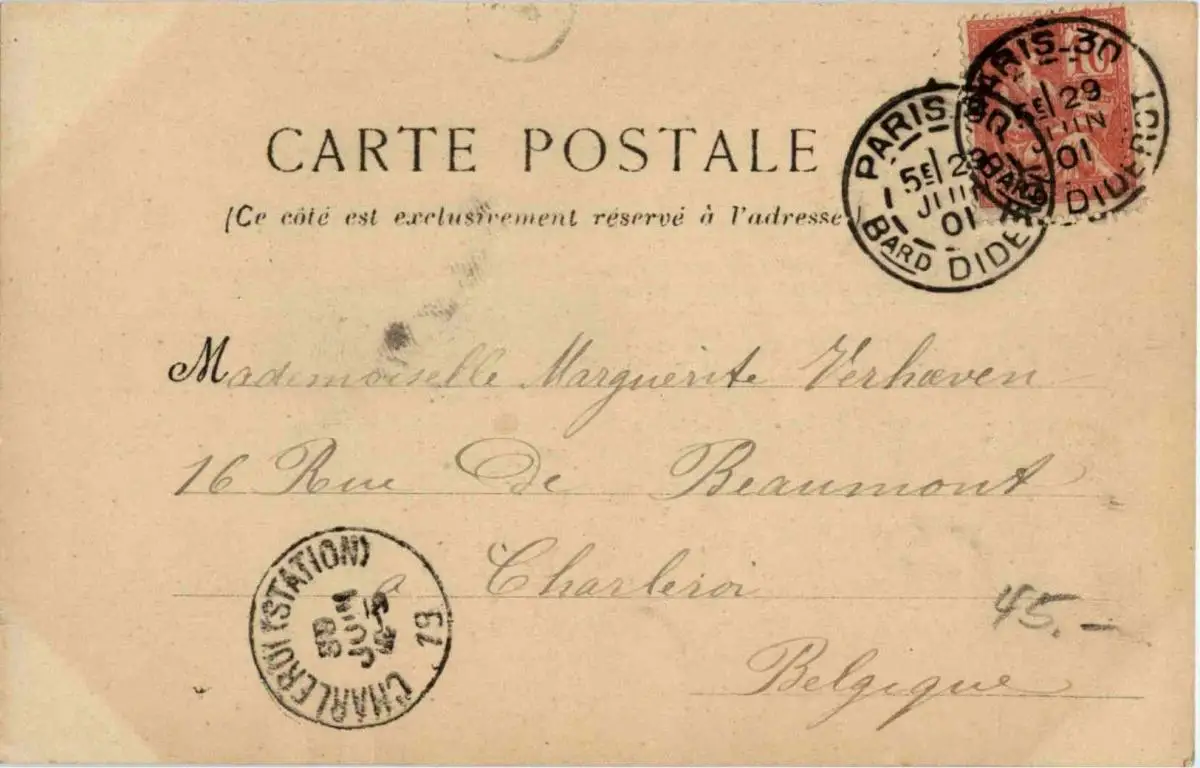 CARTE POSTALE
(Ce côté est exclusivement réservé à l'adresse)
10
PARIS 30
5E 29
JUIN
01
BARD DIDEROT
PARIS 30
5E 29
JUIN
01
BARD DIDE
Mademoiselle Marguerite Verhæven
16 Rue De Beaumont
à Charleroi
Belgique
CHARLEROI (STATION)
JUIN
19
45.-